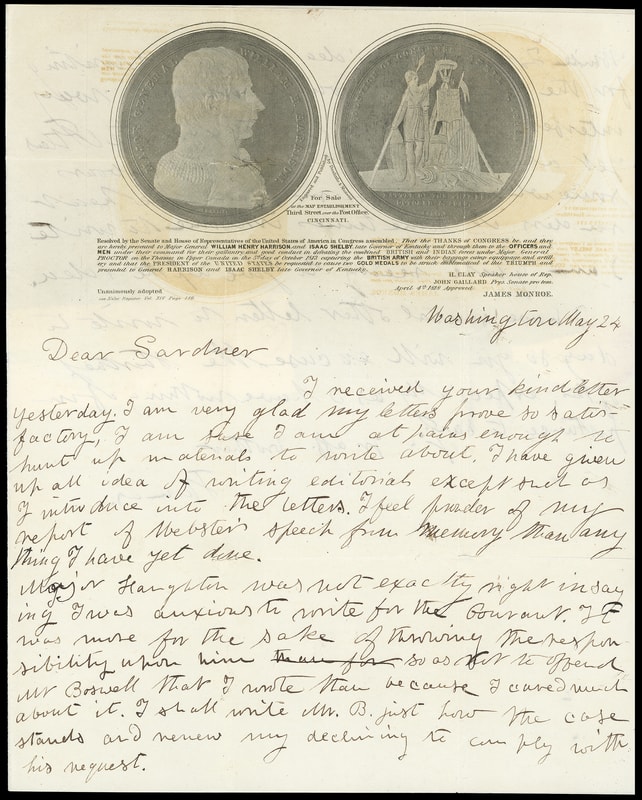 MAJOR GENERAL WILLIAM H. HARRISON
For Sale
at the MAP ESTABLISHMENT
Third Street near the Post Office,
CINCINNATI.
Resolved by the Senate and House of Representatives of the United States of America in Congress assembled, That the THANKS OF CONGRESS be, and they
are hereby presented to Major General WILLIAM HENRY HARRISON and ISAAC SHELBY, late Governor of Kentucky, and through them to the OFFICERS and
MEN under their command for their gallantry and good conduct in defeating the combined BRITISH and INDIAN forces under Major General
PROCTOR on the Thames in Upper Canada on the 5th day of October 1813 capturing the BRITISH ARMY with their baggage camp equipage and artill
ery and that the PRESIDENT of the UNITED STATES be requested to cause two GOLD MEDALS to be struck emblematical of the TRIUMPH and
presented to General HARRISON and ISAAC SHELBY late Governor of Kentucky.
H. CLAY Speaker house of Rep.
JOHN GAILLARD Prest Senate pro tem.
April 4th 1818 Approved.
Unanimously adopted
see Niles Register Vol. XIV Page
JAMES MONROE.
Washington May 24
Dear Gardner
I received your kind letter
yesterday. I am very glad my letters prove so satis-
factory, I am sure I am at pains enough to
hunt up materials to write about. I have given
up all idea of writing editorials except such as
I introduce into the letters. I feel prouder of my
report of Webster's speech from memory than any
thing I have yet done.
Major Haughton was not exactly right in say
ing I was anxious to write for the Courant. It
was more for the sake of throwing the respon
sibility upon him than for so as not to offend
Mr Boswell that I wrote than because I cared much
about it. I shall write Mr. B. just how the case
stands and renew my declining to comply with
his request.